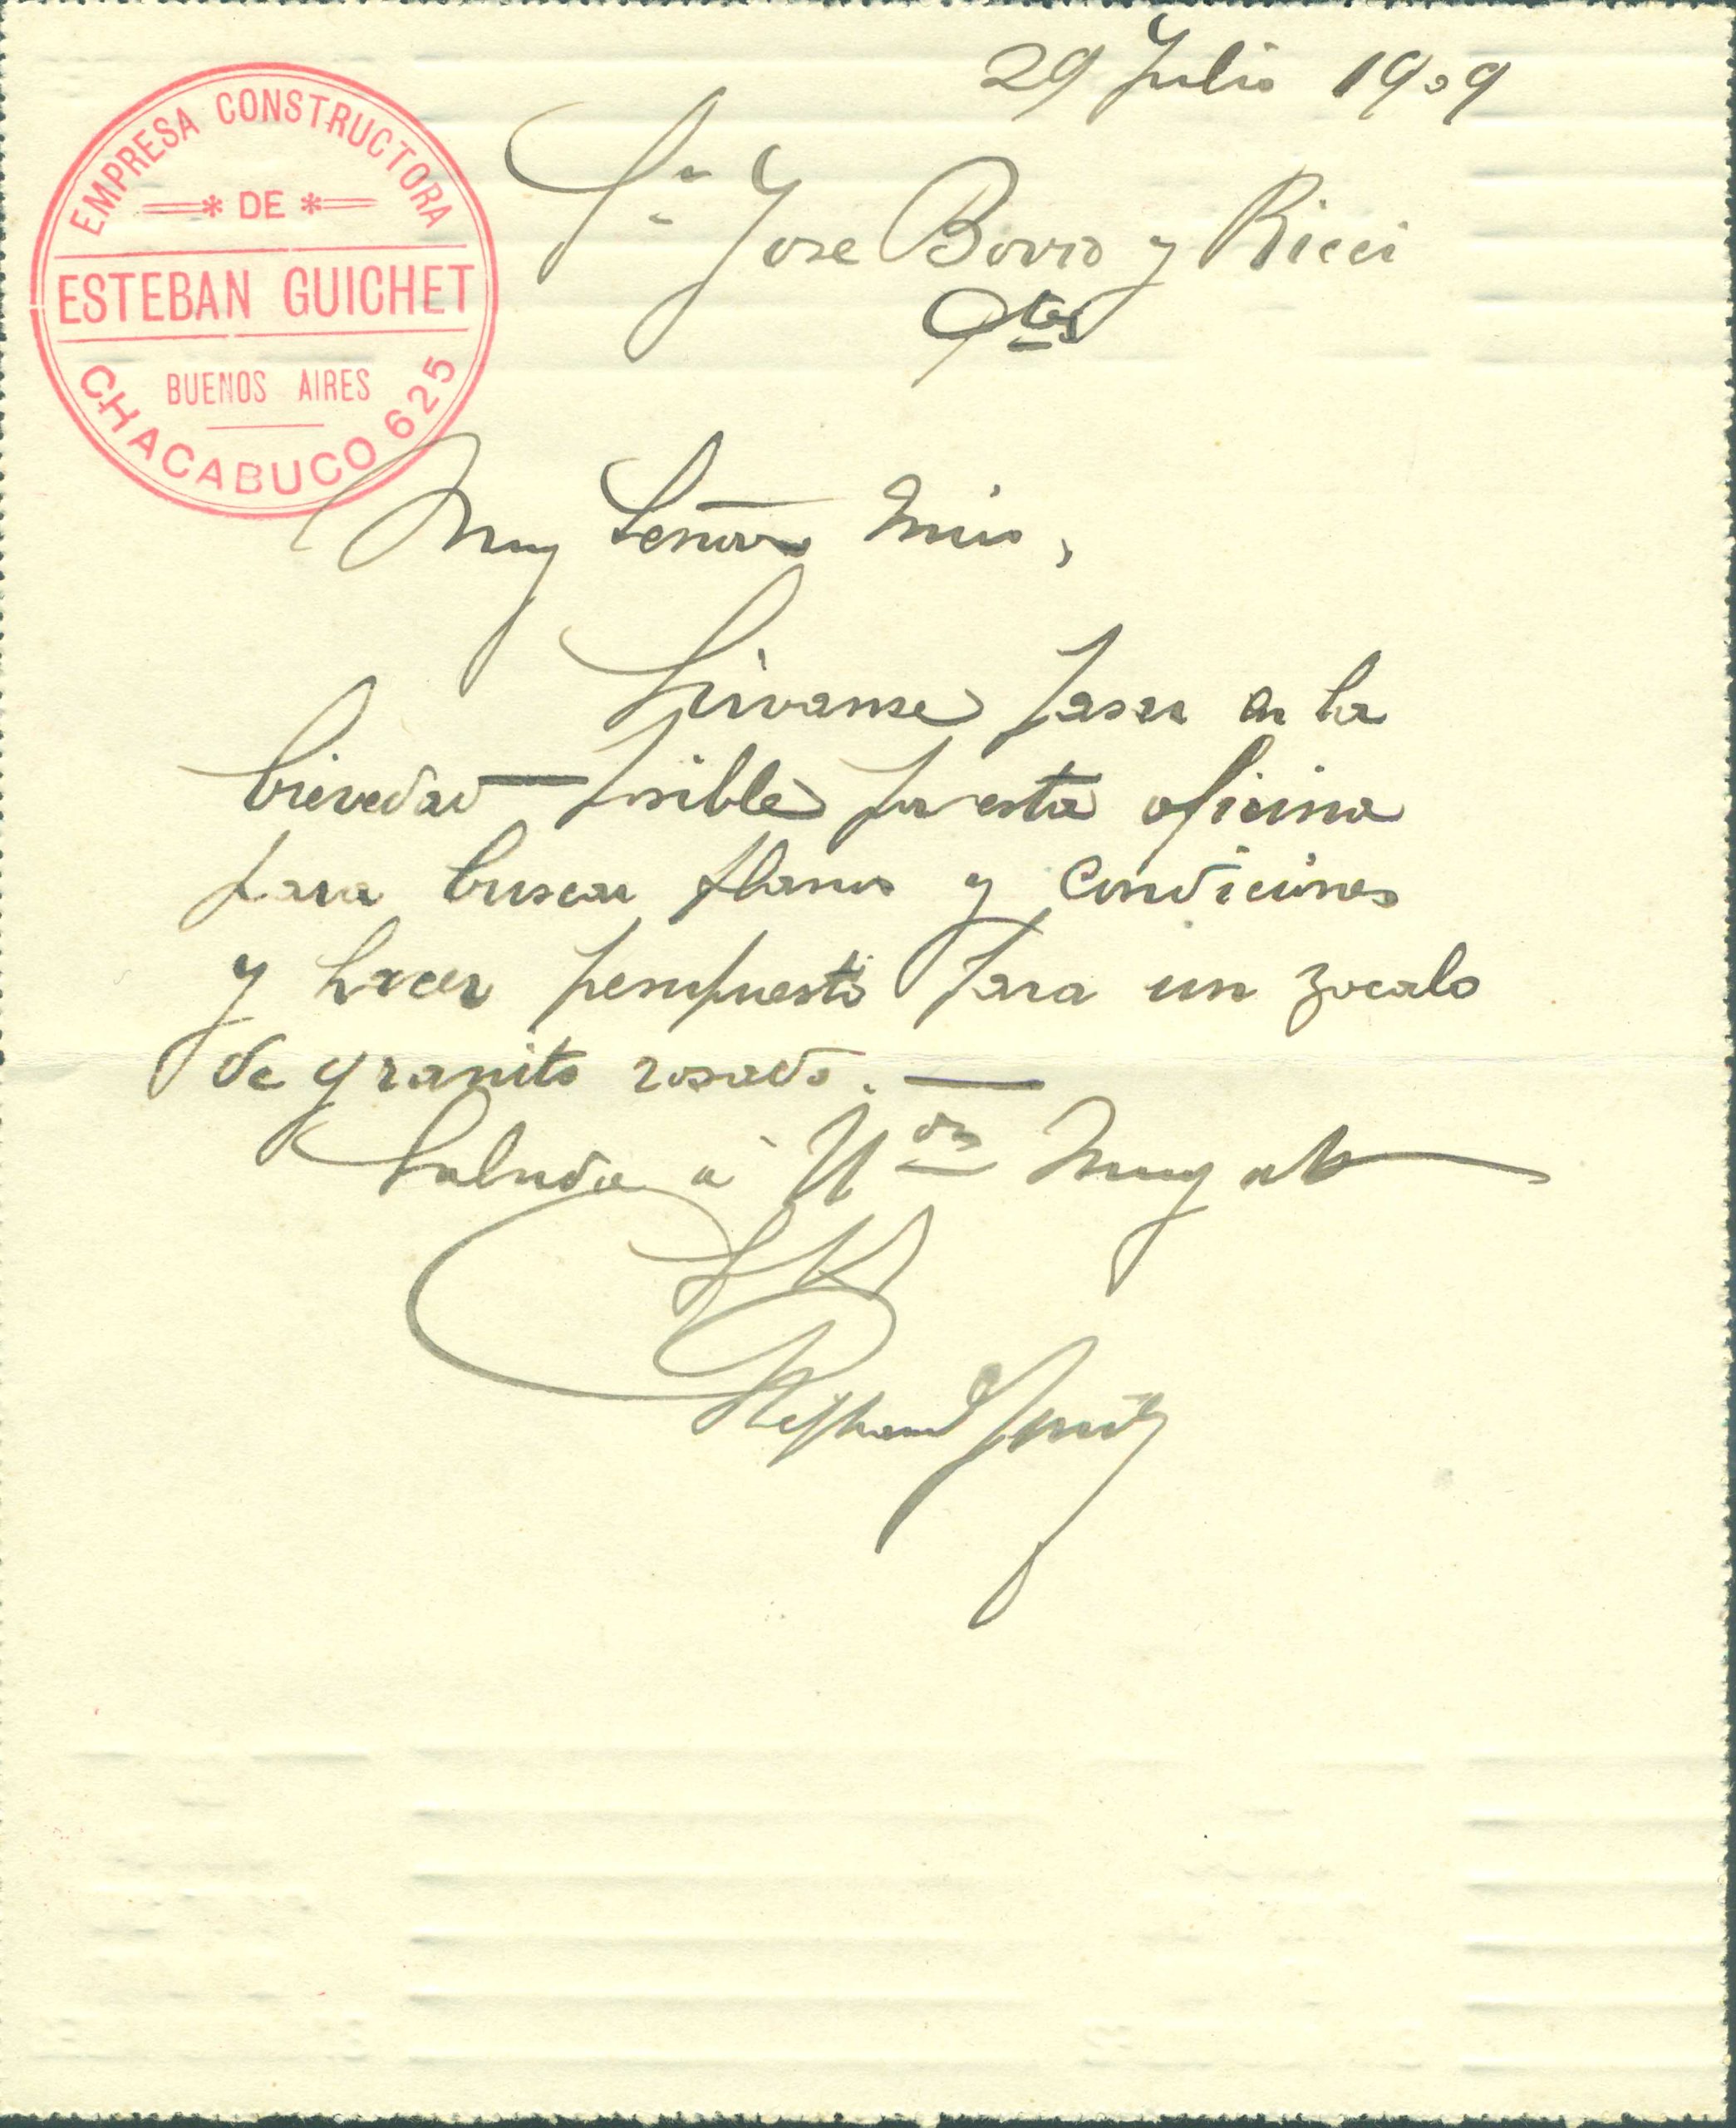 29 Julio 1909
EMPRESA CONSTRUCTORA
DE
ESTEBAN GUICHET
BUENOS AIRES
CHACABUCO 625
Sr Jose Borro y Ricci
Muy Señor mio,
Sirvanse pasar a la
brevedad posible por esta oficina
para buscar planos y condiciones
y hacer presupuesto para un zocalo
de granito rosado. —
Saluda á Uds muy att